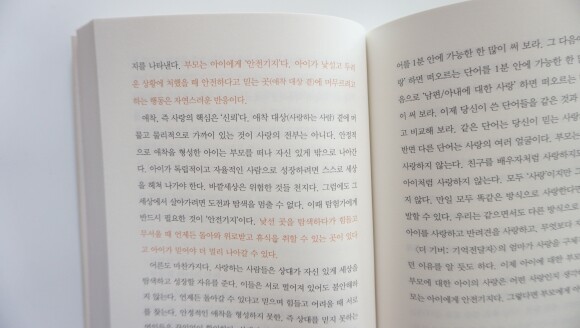 지를 나타낸다. 부모는 아이에게 '안전기지'다. 아이가 낯설고 두려
운 상황에 처했을 때 안전하다고 믿는 곳(애착 대상 곁)에 머무르려고
하는 행동은 자연스러운 반응이다.
애착, 즉 사랑의 핵심은 '신뢰'다. 애착 대상(사랑하는 사람) 곁에 머
물고 물리적으로 가까이 있는 것이 사랑의 전부는 아니다. 안정적
으로 애착을 형성한 아이는 부모를 떠나 자신 있게 밖으로 나아한
다. 아이가 독립적이고 자율적인 사람으로 성장하려면 스스로 세상
을 헤쳐 나가야 한다. 바깥세상은 위험한 것들 천지다. 그럼에도 그
세상에서 살아가려면 도전과 탐색을 멈출 수 없다. 이때 탐험가에게
반드시 필요한 것이 '안전기지'다. 낯선 곳을 탐색하다가 힘들고
무서울 때 언제든 돌아와 위로받고 휴식을 취할 수 있는 곳이 있다
고 아이가 믿어야 더 멀리 나아갈 수 있다.
어른도 마찬가지다. 사랑하는 사람들은 상대가 자신 있게 세상을
탐색하고 성장할 자유를 준다. 이들은 서로 떨어져 있어도 불안해하
지 않는다. 언제든 돌아갈 수 있다고 믿으며 힘들고 어려울 때 서로
를 찾는다. 안정적인 애착을 형성하지 못한, 즉 상대를 믿지 못하는
어를 1분 안에 가능한 한 많이 써 보라. 그 다음에
랑' 하면 떠오르는 단어를 1분 안에 가능한
음으로 '남편/아내에 대한 사랑' 하면 떠오르는
써 보라. 이제 당신이 쓴 단어들을 같은 것과
고 비교해 보라. 같은 단어는 당신이 믿는 사랑
반면 다른 단어는 사랑의 여러 얼굴이다. 부모
사랑하지 않는다. 친구를 배우자처럼 사랑하지
아이처럼 사랑하지는 않는다. 모두 '사랑'이지만 그
다. 만일 모두 똑같은 방식으로 사랑한다
발할 수 있다. 우리는 같으면서도 다른 방식으로
아이를 사랑하고 반려견을 사랑하고, 무엇보다
《더 기버: 기억전달자》의 엄마가 사랑을 구
던 이유를 알 듯도 하다. 이제 아이에 대한 부모
부모에 대한 아이의 사랑은 어떤 사랑인지 생각
부모는 아이에게 안전기지다. 그렇다면 부모에게 아